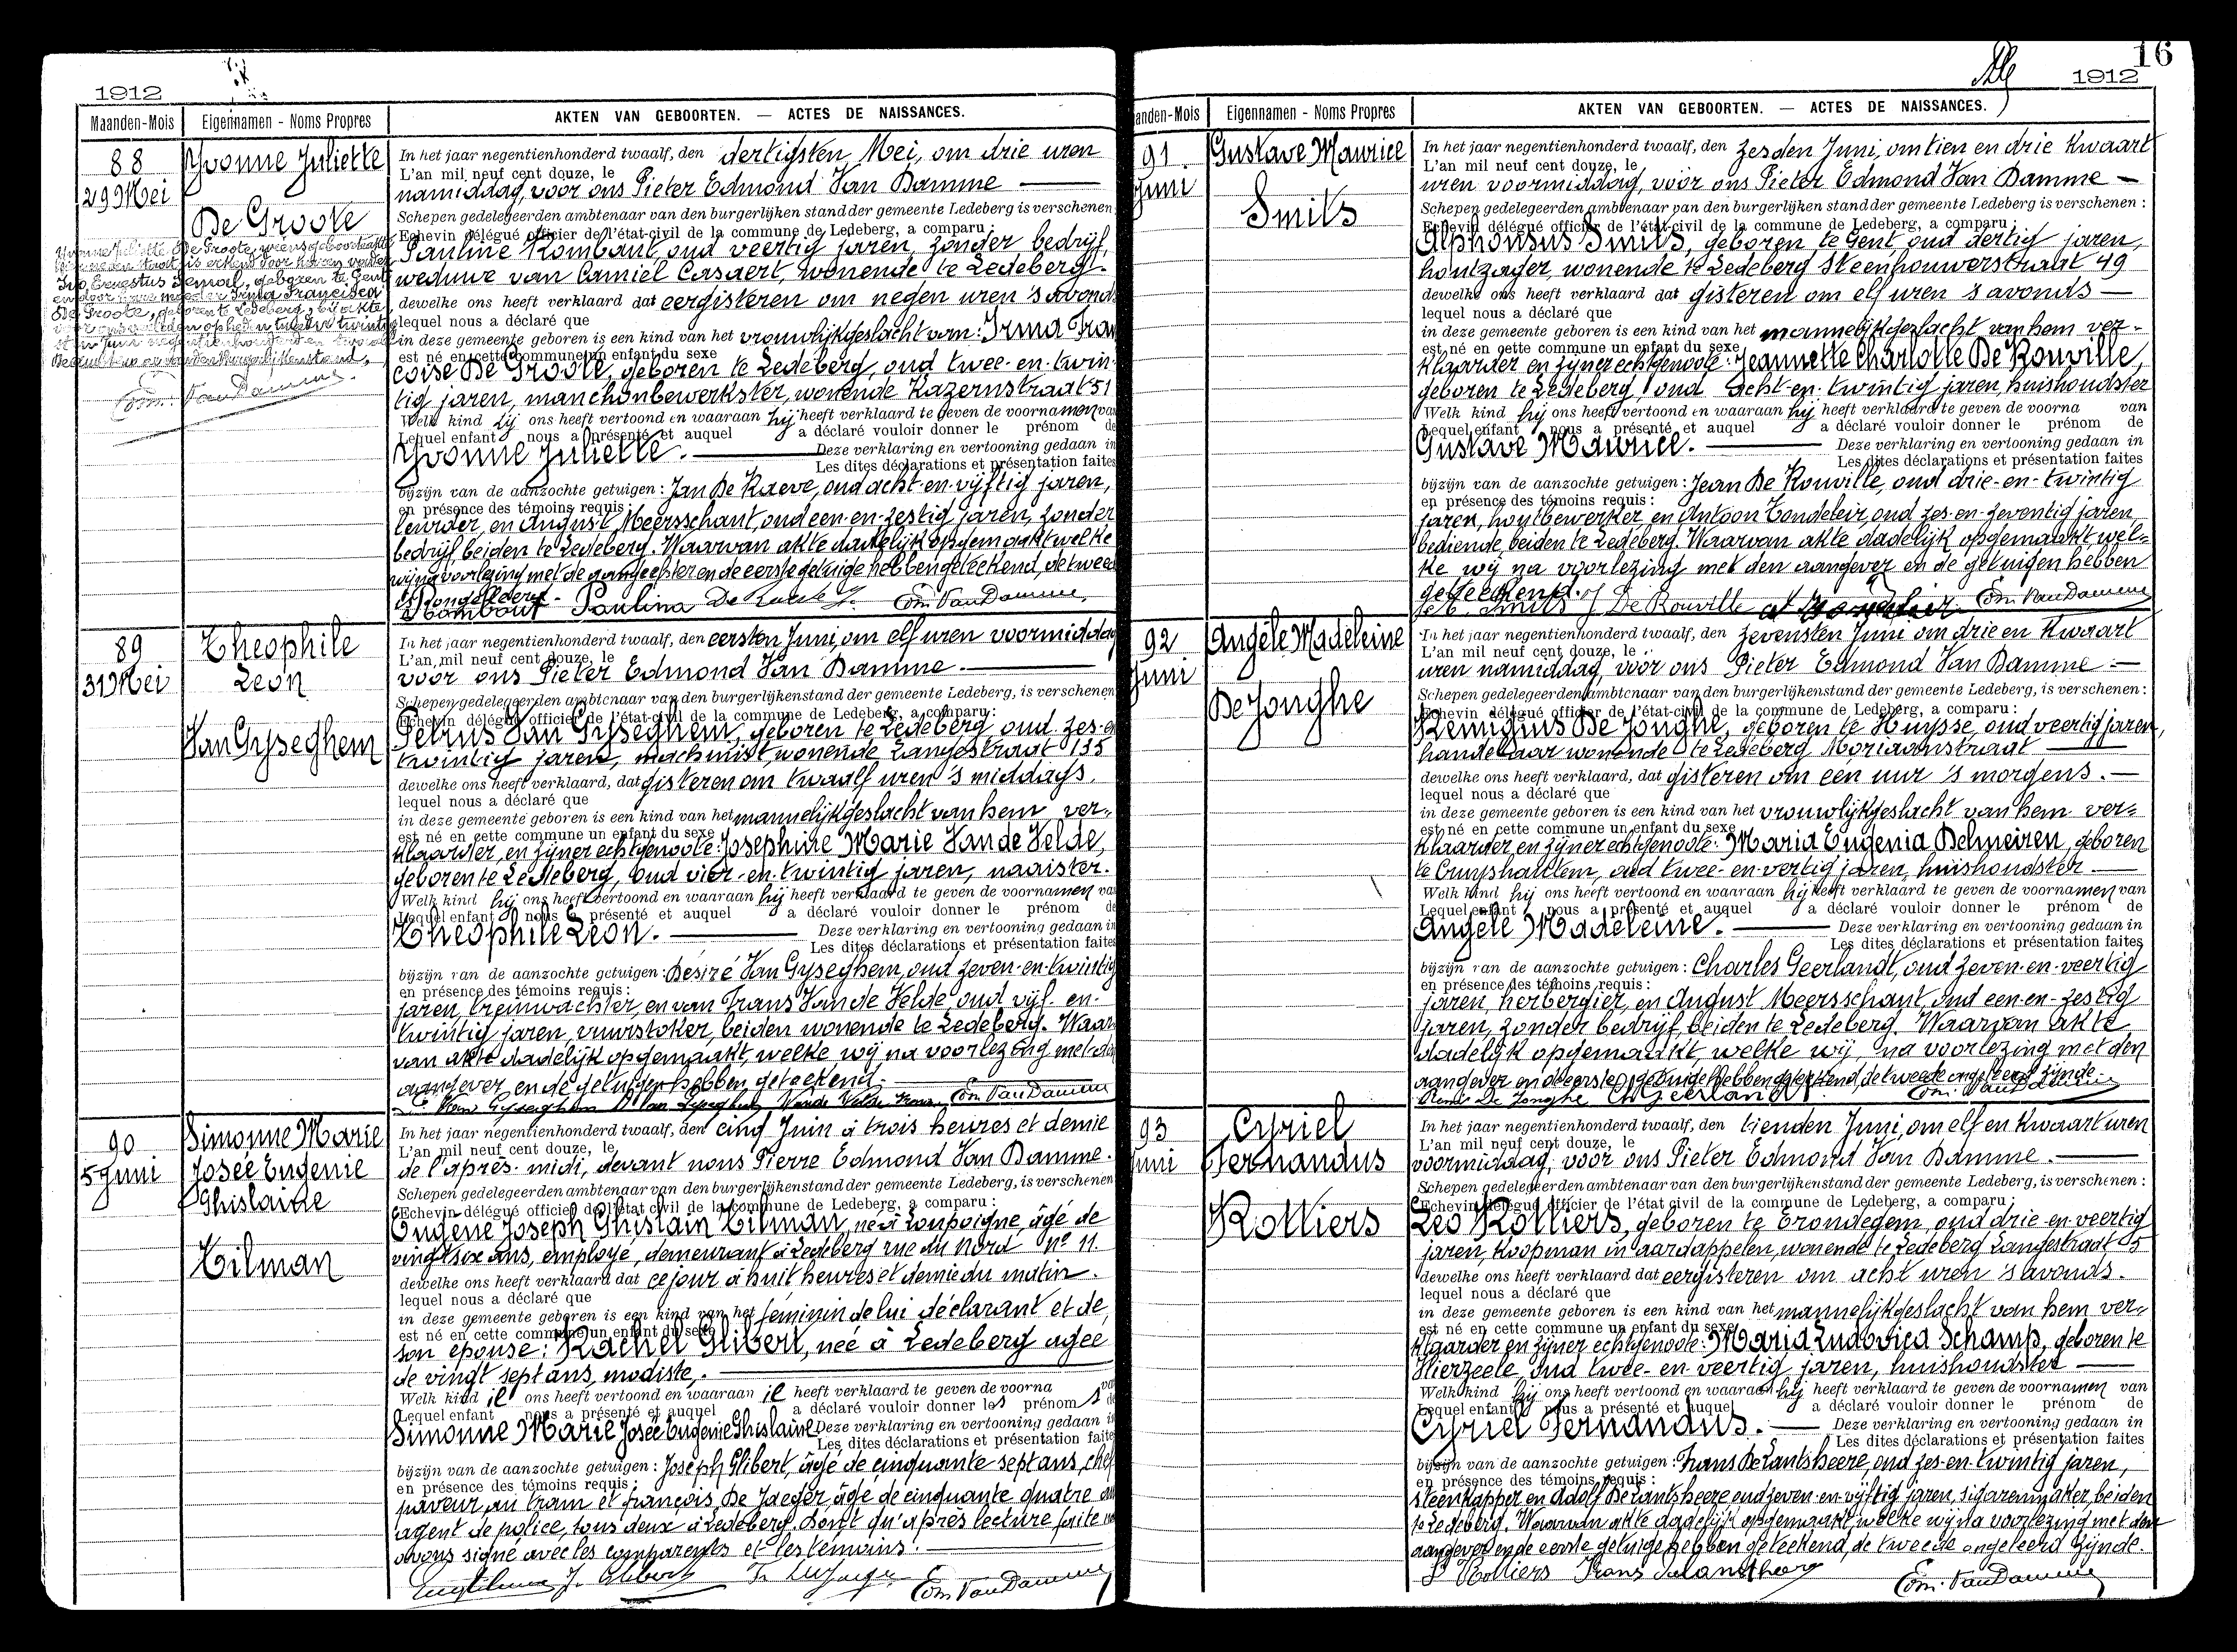 1912
Maanden-Mois Eigennamen - Noms Propres AKTEN VAN GEBOORTEN. — ACTES DE NAISSANCES.
88
29 Mei
Yvonne Juliette
De Groote
Yvonne Juliette De Groote, wiens geboorteakte
is erkend door haren vader
Ivo Ernestus geboren te Gent
en door hare moeder Irma Francisca
De Groote, geboren te Ledeberg, bij akte
Edm. Van Damme.
In het jaar negentienhonderd twaalf, den dertigsten Mei, om drie uren
L'an mil neuf cent douze, le
namiddag, voor ons Pieter Edmond Van Damme
Schepen gedelegeerden ambtenaar van den burgerlijken stand der gemeente Ledeberg is verschenen
Echevin délégué officier de l'état-civil de la commune de Ledeberg, a comparu:
Pauline Rombaut, oud veertig jaren, zonder bedrijf,
weduwe van Camiel Casaert, wonende te Ledeberg.
dewelke ons heeft verklaard dat eergisteren om negen uren 's avonds
lequel nous a déclaré que
in deze gemeente geboren is een kind van het vrouwlijkgeslacht van: Irma Fran
est né en cette commune un enfant du sexe
coise De Groote, geboren te Ledeberg, oud twee-en-twin-
tig jaren, manchonbewerkster, wonende Kazernstraat 51
Welk kind zij ons heeft vertoond en waaraan hij heeft verklaard te geven de voornamen van
Lequel enfant nous a présenté et auquel a déclaré vouloir donner le prénom de
Yvonne Juliette. Deze verklaring en vertooning gedaan in
Les dites déclarations et présentation faites
bijzijn van de aanzochte getuigen: Jan De Raeve, oud acht-en-vijftig jaren,
en présence des témoins requis:
leurder, en August Meersschaut, oud een-en-zestig jaren, zonder
bedrijf, beiden te Ledeberg. Waarvan akte dadelijk opgemaakt welke
wij na voorlezing met de aangeefster en de eerste getuige hebben geteekend, de tweede
ongeleerd.
Rombaut Paulina De Raeve J. Edm. Van Damme.
89
31 Mei
Theophile
Leon
Van Gyseghem
In het jaar negentienhonderd twaalf, den eersten Juni, om elf uren voormiddag
L'an mil neuf cent douze, le
voor ons Pieter Edmond Van Damme.
Schepen gedelegeerden ambtenaar van den burgerlijkenstand der gemeente Ledeberg, is verschenen
Echevin délégué officier de l'état-civil de la commune de Ledeberg, a comparu:
Petrus Van Gyseghem, geboren te Ledeberg oud zes-en
twintig jaren, machinist, wonende Langestraat 135
dewelke ons heeft verklaard, dat gisteren om twaalf uren 's middags.
lequel nous a déclaré que
in deze gemeente geboren is een kind van het mannelijkgeslacht van hem ver-
est né en cette commune un enfant du sexe
klaarder, en zijner echtgenoote: Josephine Marie Van de Velde,
geboren te Ledeberg, oud vier-en-twintig jaren, naaister.
Welk kind hij ons heeft vertoond en waaraan hij heeft verklaard te geven de voornamen van
Lequel enfant nous a présenté et auquel a déclaré vouloir donner le prénom de
Theophile Leon. Deze verklaring en vertooning gedaan in
Les dites déclarations et présentation faites
bijzijn van de aanzochte getuigen: Désiré Van Gyseghem, oud zeven-en-twintig
en présence des témoins requis:
jaren, treinwachter, en van Frans Van de Velde oud vijf-en-
twintig jaren, vuurstoker, beiden wonende te Ledeberg. Waar
van akte dadelijk opgemaakt, welke wij na voorlezing met den
aangever, en de getuigen hebben geteekend.
Van Gyseghem Van Gyseghem Van de Velde Frans Edm. Van Damme
90
5 Juni
Simonne Marie
Josée Eugenie
Ghislaine
Tilman
In het jaar negentienhonderd twaalf, den cinq Juin à trois heures et demie
L'an mil neuf cent douze, le
de l'après-midi, devant nous Pierre Edmond Van Damme.
Schepen gedelegeerden ambtenaar van den burgerlijkenstand der gemeente Ledeberg, is verschenen
Echevin délégué officier de l'état civil de la commune de Ledeberg, a comparu:
Eugène Joseph Ghislain Tilman, né à Loupoigne, âgé de
vingt six ans, employé, demeurant à Ledeberg rue du Nord n° 11.
dewelke ons heeft verklaard dat ce jour à huit heures et demie du matin.
lequel nous a déclaré que
in deze gemeente geboren is een kind van het féminin de lui déclarant et de
est né en cette commune un enfant du sexe
son épouse: Rachel Glibert, née à Ledeberg agée
de vingt sept ans, modiste,.
Welk kind il ons heeft vertoond en waaraan il heeft verklaard te geven de voorna van
Lequel enfant nous a présenté et auquel a déclaré vouloir donner les prénoms de
Simonne Marie Josée Eugenie Ghislaine Deze verklaring en vertooning gedaan in
Les dites déclarations et présentation faites
bijzijn van de aanzochte getuigen: Joseph Glibert, âgé de cinquante sept ans, chef
en présence des témoins requis:
paveur au tram et françois De Jaeger, âgé de cinquante quatre ans
agent de police, tous deux à Ledeberg. Dont qu'après lecture faite nous
avons signé avec les comparents et les témoins.
Eug Tilman J. Glibert Fr. De Jaeger Edm. Van Damme
16
1912
anden-Mois Eigennamen - Noms Propres AKTEN VAN GEBOORTEN. — ACTES DE NAISSANCES.
91
Juni
Gustave Maurice
Smits
In het jaar negentienhonderd twaalf, den zesden Juni, om tien en drie kwaart
L'an mil neuf cent douze, le
uren voormiddag, voor ons Pieter Edmond Van Damme
Schepen gedelegeerden ambtenaar van den burgerlijken stand der gemeente Ledeberg is verschenen:
Echevin délégué officier de l'état-civil de la commune de Ledeberg, a comparu:
Alphonsus Smits, geboren te Gent oud dertig jaren,
houtzager, wonende te Ledeberg Steenhouwerstraat 49
dewelke ons heeft verklaard dat gisteren om elf uren 's avonds
lequel nous a déclaré que
in deze gemeente geboren is een kind van het mannelijkgeslacht van hem ver-
est né en cette commune un enfant du sexe
klaarder en zijner echtgenoote: Jeannette Charlotte De Rouville,
geboren te Ledeberg, oud acht-en-twintig jaren, huishoudster
Welk kind hij ons heeft vertoond en waaraan hij heeft verklaard te geven de voorna van
Lequel enfant nous a présenté et auquel a déclaré vouloir donner le prénom de
Gustave Maurice. Deze verklaring en vertooning gedaan in
Les dites déclarations et présentation faites
bijzijn van de aanzochte getuigen: Jean De Rouville, oud drie-en-twintig
en présence des témoins requis:
jaren, houtbewerker, en Antoon Tondeleir, oud zes-en-zeventig jaren
bediende, beiden te Ledeberg. Waarvan akte dadelijk opgemaakt, wel=
ke wij na voorlezing met den aangever en de getuigen hebben
geteekend.
Smits J De Rouville Edm. Van Damme
92
Juni
Angèle Madeleine
De Jonghe
In het jaar negentienhonderd twaalf, den zevensten Juni om drie en kwaart
L'an mil neuf cent douze, le
uren namiddag, voor ons Pieter Edmond Van Damme
Schepen gedelegeerden ambtenaar van den burgerlijkenstand der gemeente Ledeberg, is verschenen:
Echevin délégué officier de l'état-civil de la commune de Ledeberg, a comparu:
Remigius De Jonghe, geboren te Huysse, oud veertig jaren,
handelaar wonende te Ledeberg Moriaanstraat
dewelke ons heeft verklaard, dat gisteren om een uur 's morgens.
lequel nous a déclaré que
in deze gemeente geboren is een kind van het vrouwlijkgeslacht van hem ver=
est né en cette commune un enfant du sexe
klaarder, en zijner echtgenoote: Maria Eugenia Delmeiren, geboren
te Cruyshautem, oud twee-en-veertig jaren, huishoudster
Welk kind hij ons heeft vertoond en waaraan hij heeft verklaard te geven de voornamen van
Lequel enfant nous a présenté et auquel a déclaré vouloir donner le prénom de
Angèle Madeleine. Deze verklaring en vertooning gedaan in
Les dites déclarations et présentation faites
bijzijn van de aanzochte getuigen: Charles Geerlandt, oud zeven-en-veertig
en présence des témoins requis:
jaren, herbergier, en August Meersschaut, oud een-en-zestig
jaren, zonder bedrijf, beiden te Ledeberg. Waarvan akte
dadelijk opgemaakt, welke wij, na voorlezing met den
aangever en de eerste getuige hebben geteekend, de tweede ongeleerd zijnde.
Remi De Jonghe Ch Geerlandt. Edm. Van Damme
93
Juni
Cyriel
Fernandus
Rottiers
In het jaar negentienhonderd twaalf, den tienden Juni, om elf en kwaart uren
L'an mil neuf cent douze, le
voormiddag, voor ons Pieter Edmond Van Damme.
Schepen gedelegeerden ambtenaar van den burgerlijkenstand der gemeente Ledeberg, is verschenen:
Echevin délégué officier de l'état civil de la commune de Ledeberg, a comparu:
Leo Rottiers, geboren te Erondegem, oud drie-en-veertig
jaren, koopman in aardappelen, wonende te Ledeberg Langestraat 5
dewelke ons heeft verklaard dat eergisteren om acht uren 's avonds.
lequel nous a déclaré que
in deze gemeente geboren is een kind van het mannelijkgeslacht van hem ver-
est né en cette commune un enfant du sexe
klaarder en zijner echtgenoote: Maria Ludovica Schamp, geboren te
Hierzeele, oud twee-en-veertig jaren, huishoudster
Welk kind hij ons heeft vertoond en waaraan hij heeft verklaard te geven de voornamen van
Lequel enfant nous a présenté et auquel a déclaré vouloir donner le prénom de
Cyriel Fernandus. Deze verklaring en vertooning gedaan in
Les dites déclarations et présentation faites
bijzijn van de aanzochte getuigen: Frans De Lantsheere, oud zes-en-twintig jaren,
en présence des témoins requis:
steenkapper en Adolf De Lantsheere oud zeven-en-vijftig jaren, sigarenmaker, beiden
te Ledeberg. Waarvan akte dadelijk opgemaakt, welke wij na voorlezing met den
aangever en de eerste getuige hebben geteekend, de tweede ongeleerd zijnde.
L Rottiers Frans Delantsheere Edm. Van Damme